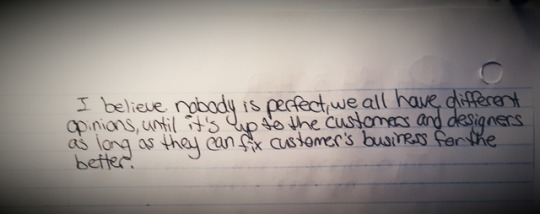 I believe nobody is perfect, we all have different
opinions, until it's up to the customers and designers
as long as they can fix customer's business for the
better.